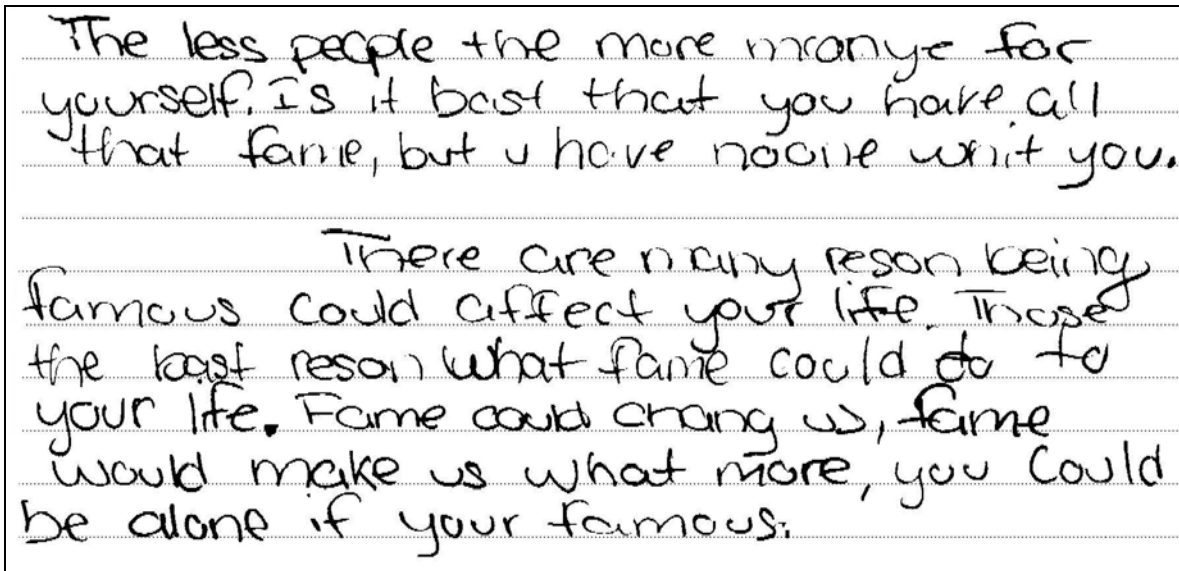 The less people the more manye for
yourself. Is it bast that you have all
that fame, but u have noone whit you.
There are many reson being
famous could affect your life. Those
the bast reson what fame could do to
your life. Fame could chang us, fame
would make us what more, you could
be alone if your famous.